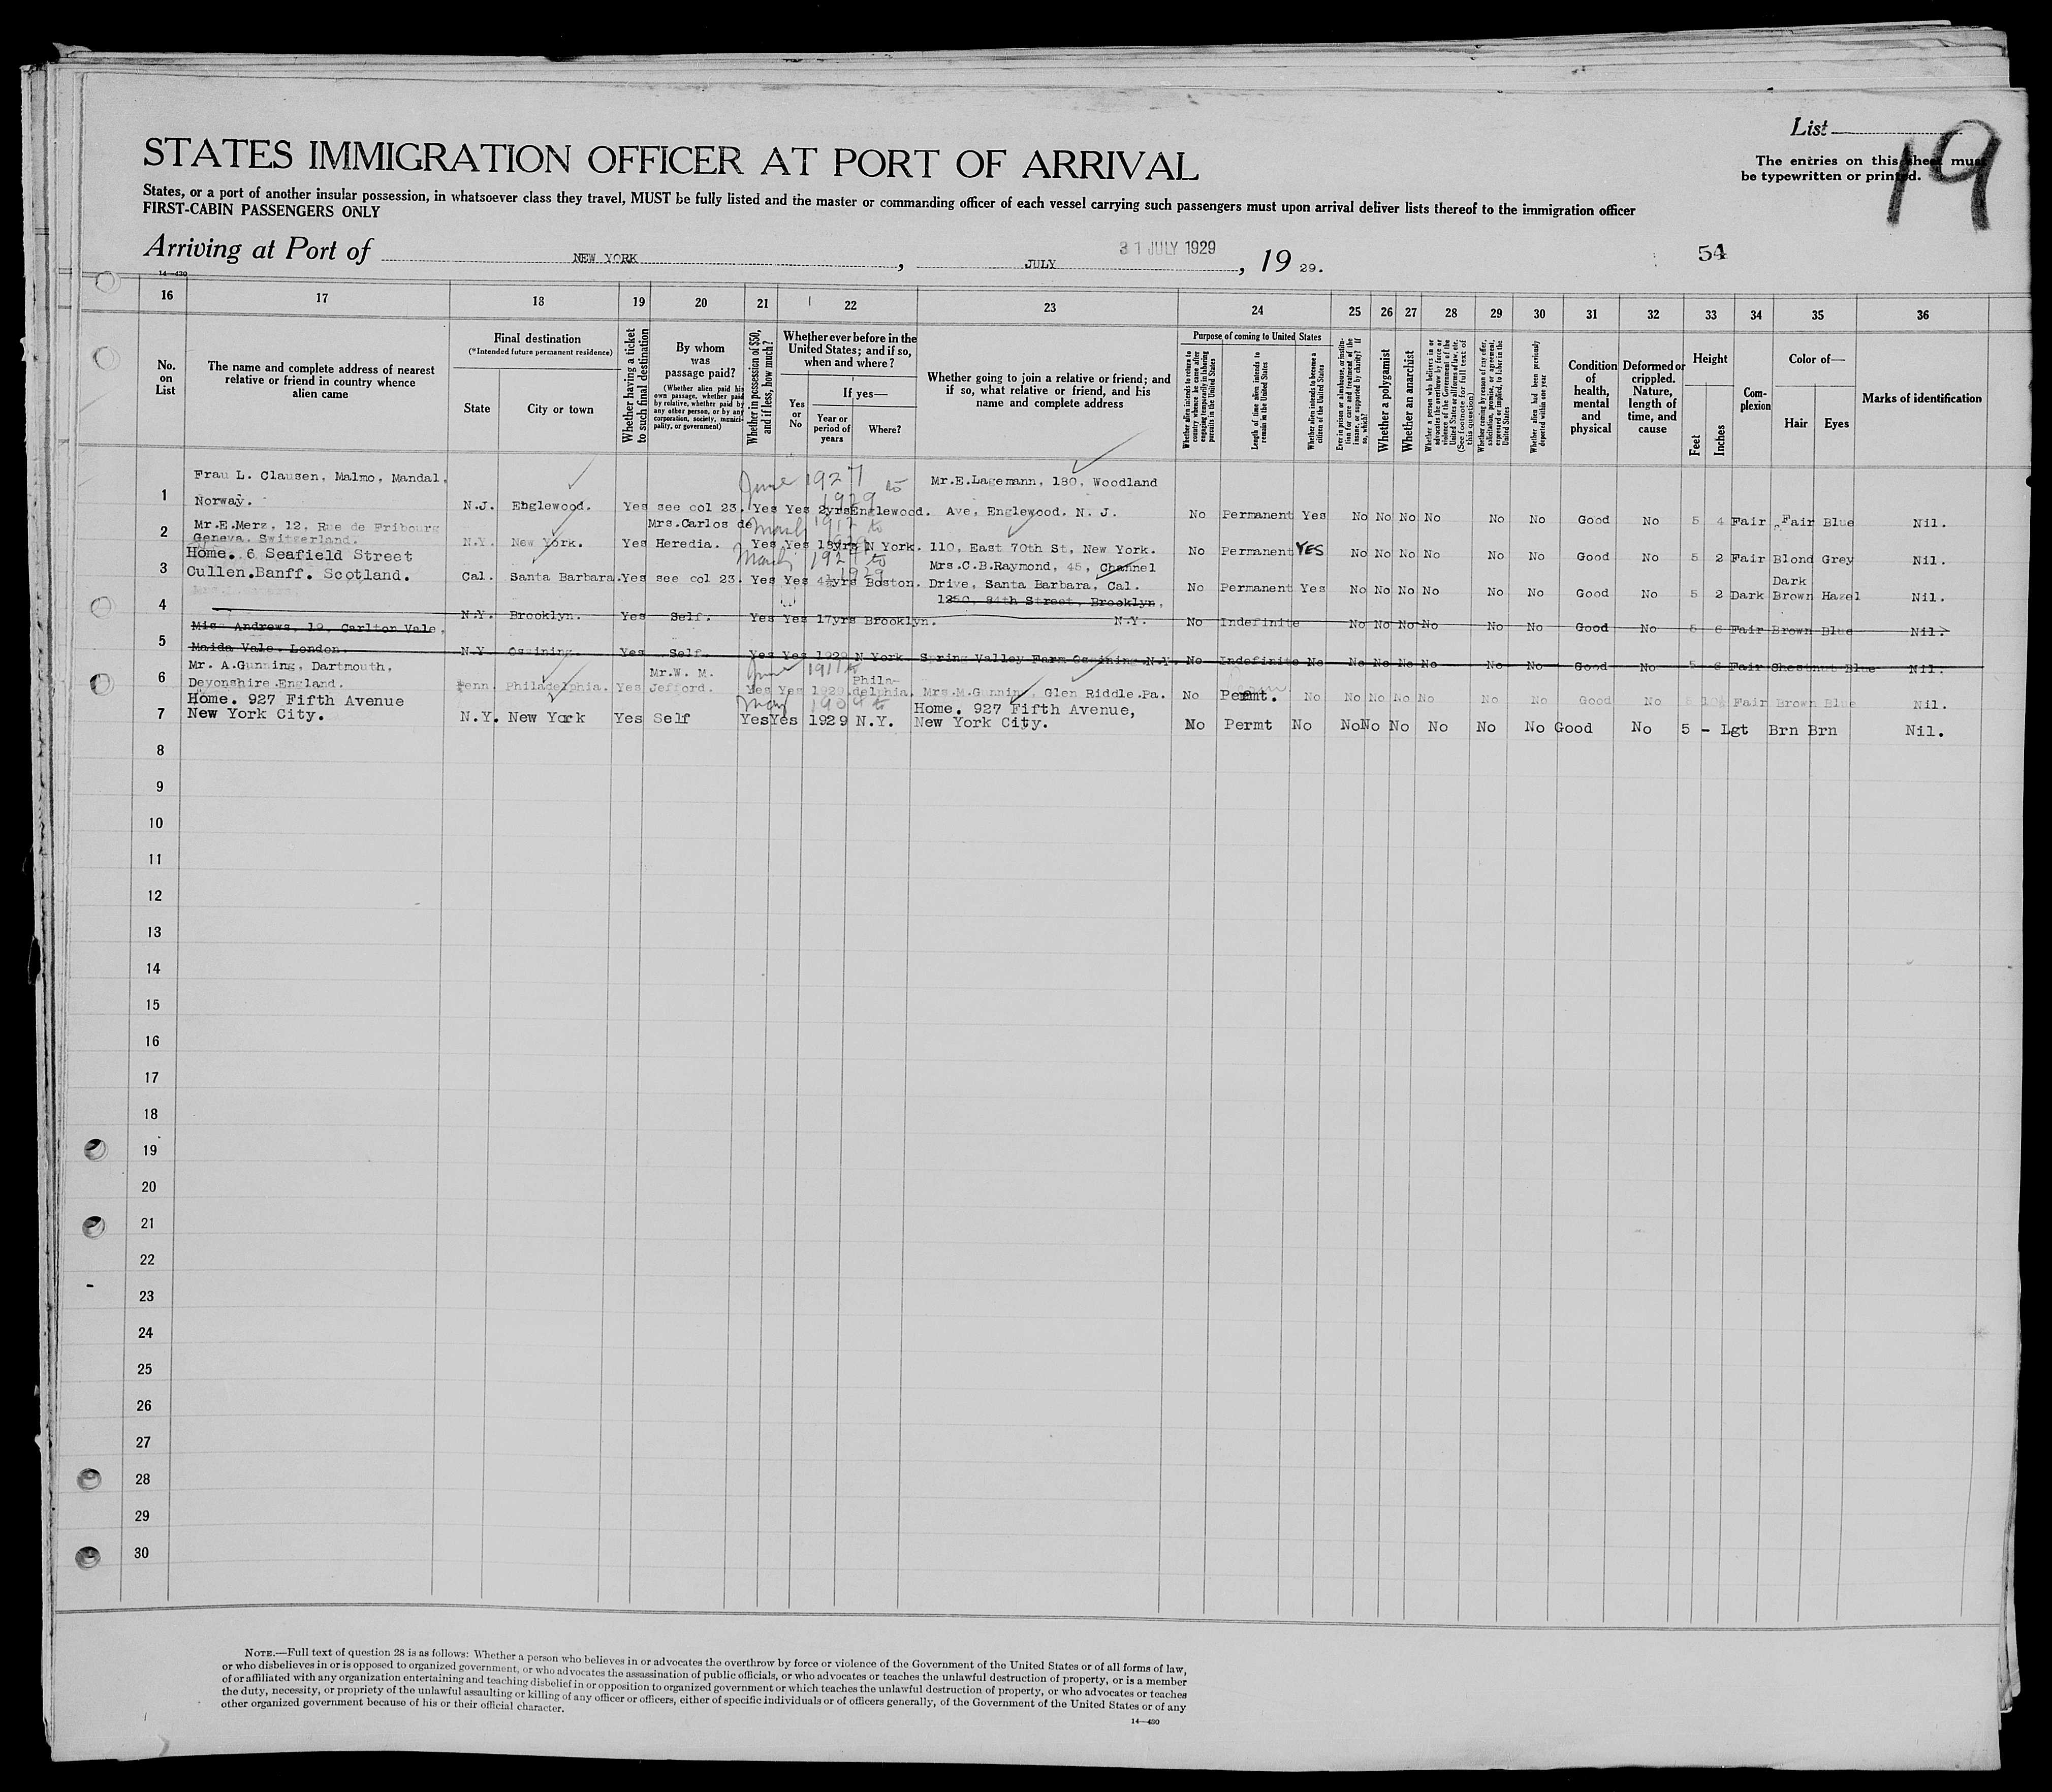 List
19
STATES IMMIGRATION OFFICER AT PORT OF ARRIVAL
The entries on this sheet must
be typewritten or printed.
States, or a port of another insular possession, in whatsoever class they travel, MUST be fully listed and the master or commanding officer of each vessel carrying such passengers must upon arrival deliver lists thereof to the immigration officer
FIRST-CABIN PASSENGERS ONLY
Arriving at Port of NEW YORK, JULY 31 JULY 1929, 19 29. 54
14—430
16 17 18 19 20 21 22 23 24 25 26 27 28 29 30 31 32 33 34 35 36
No. on List
The name and complete address of nearest relative or friend in country whence alien came
Final destination
(*Intended future permanent residence)
State
City or town
Whether having a ticket to such final destination
By whom was passage paid?
(Whether alien paid his own passage, whether paid by relative, whether paid by any other person, or by any corporation, society, municipality, or government)
Whether in possession of $50, and if less, how much?
Whether ever before in the United States; and if so, when and where?
Yes or No
If yes—
Year or period of years
Where?
Whether going to join a relative or friend; and if so, what relative or friend, and his name and complete address
Purpose of coming to United States
Whether alien intends to return to country whence he came after engaging temporarily in laboring pursuits in the United States
Length of time alien intends to remain in the United States
Whether alien intends to become a citizen of the United States
Ever in prison or almshouse, or institution for care and treatment of the insane, or supported by charity? If so, which?
Whether a polygamist
Whether an anarchist
Whether a person who believes in or advocates the overthrow by force or violence of the Government of the United States or all forms of law, etc. (See footnote for full text of this question)
Whether coming by reason of any offer, solicitation, promise, or agreement, expressed or implied, to labor in the United States
Whether alien had been previously deported within one year
Condition of health, mental and physical
Deformed or crippled. Nature, length of time, and cause
Height
Feet
Inches
Complexion
Color of—
Hair
Eyes
Marks of identification
1 Frau L. Clausen, Malmo, Mandal, Norway. N.J. Englewood. Yes see col 23. Yes Yes June 1927 to 1929 2yrs Englewood. Mr.E.Lagemann, 180, Woodland Ave, Englewood. N. J. No Permanent Yes No No No No No No Good No 5 4 Fair Fair Blue Nil.
2 Mr.E.Merz, 12, Rue de Fribourg Geneva. Switzerland. N.Y. New York. Yes Mrs.Carlos de Heredia. Yes Yes N York. 110, East 70th St, New York. No Permanent YES No No No No No No Good No 5 2 Fair Blond Grey Nil.
3 Home. 6 Seafield Street Cullen.Banff. Scotland. Cal. Santa Barbara. Yes see col 23. Yes Yes 1929 Boston. Mrs.C.B.Raymond, 45, Channel Drive, Santa Barbara, Cal. No Permanent Yes No No No No No No Good No 5 2 Dark Dark Brown Hazel Nil.
4 N.Y. Brooklyn. Yes Self. Yes Yes 17yrs Brooklyn. 1250, 84th Street, Brooklyn, N.Y. No Indefinite No No No No No No Good No 5 6 Fair Brown Blue Nil.
5 Miss Andrews, 19, Carlton Vale, Maida Vale. London. N.Y. Ossining. Yes Self. Yes Yes 1929 N York Spring Valley Farm Ossining.N.Y. No Indefinite No No No No No No No Good No 5 6 Fair Chestnut Blue Nil.
6 Mr. A.Gunning, Dartmouth, Devonshire.England. Penn. Philadelphia. Yes Mr.W. M. Jefford. Yes Yes June 1917 to 1929. Philadelphia. Mrs.M.Gunning, Glen Riddle.Pa. No Permt. No No No No No No No Good No 5 Fair Brown Blue Nil.
7 Home. 927 Fifth Avenue New York City. N.Y. New York Yes Self Yes Yes May 1904 to 1929 N.Y. Home. 927 Fifth Avenue, New York City. No Permt No No No No No No No Good No 5 - Lgt Brn Brn Nil.
8
9
10
11
12
13
14
15
16
17
18
19
20
21
22
23
24
25
26
27
28
29
30
NOTE.—Full text of question 28 is as follows: Whether a person who believes in or advocates the overthrow by force or violence of the Government of the United States or of all forms of law,
or who disbelieves in or is opposed to organized government, or who advocates the assassination of public officials, or who advocates or teaches the unlawful destruction of property, or is a member
of or affiliated with any organization entertaining and teaching disbelief in or opposition to organized government or which teaches the unlawful destruction of property, or who advocates or teaches
the duty, necessity, or propriety of the unlawful assaulting or killing of any officer or officers, either of specific individuals or of officers generally, of the Government of the United States or of any
other organized government because of his or their official character.
14—430